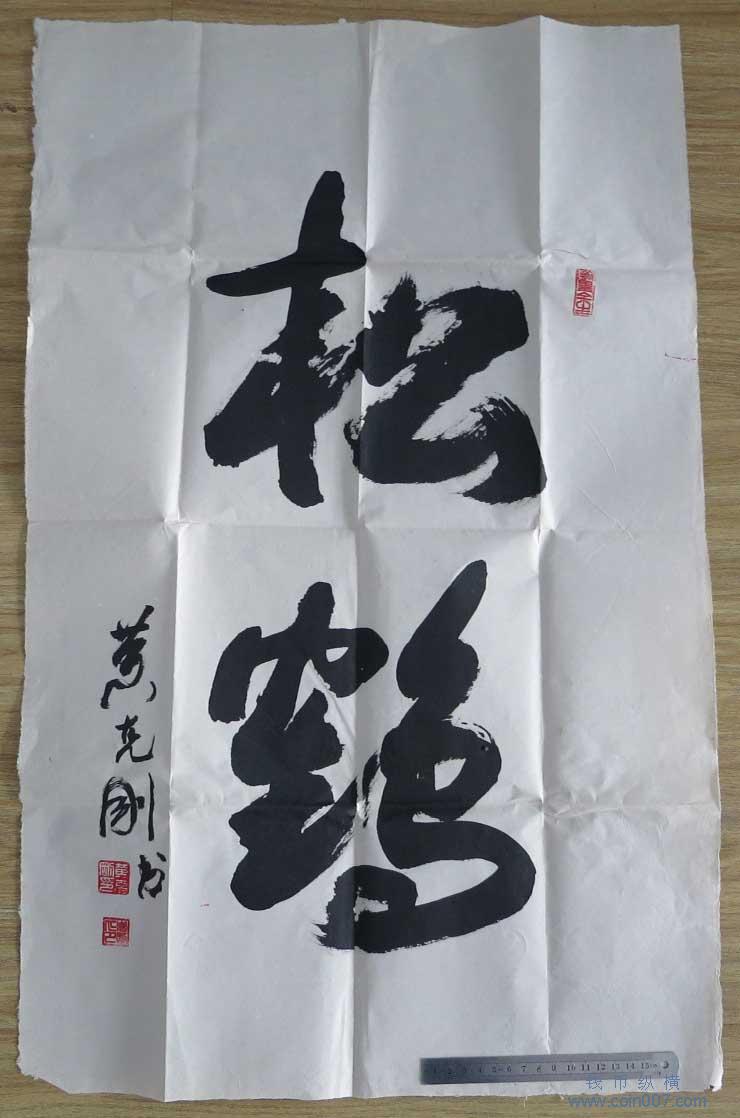 松鹤
黄克刚书
1 2 3 4 5 6 7 8 9 10 11 12 13 14 15
钱币纵横
www.coin007.com